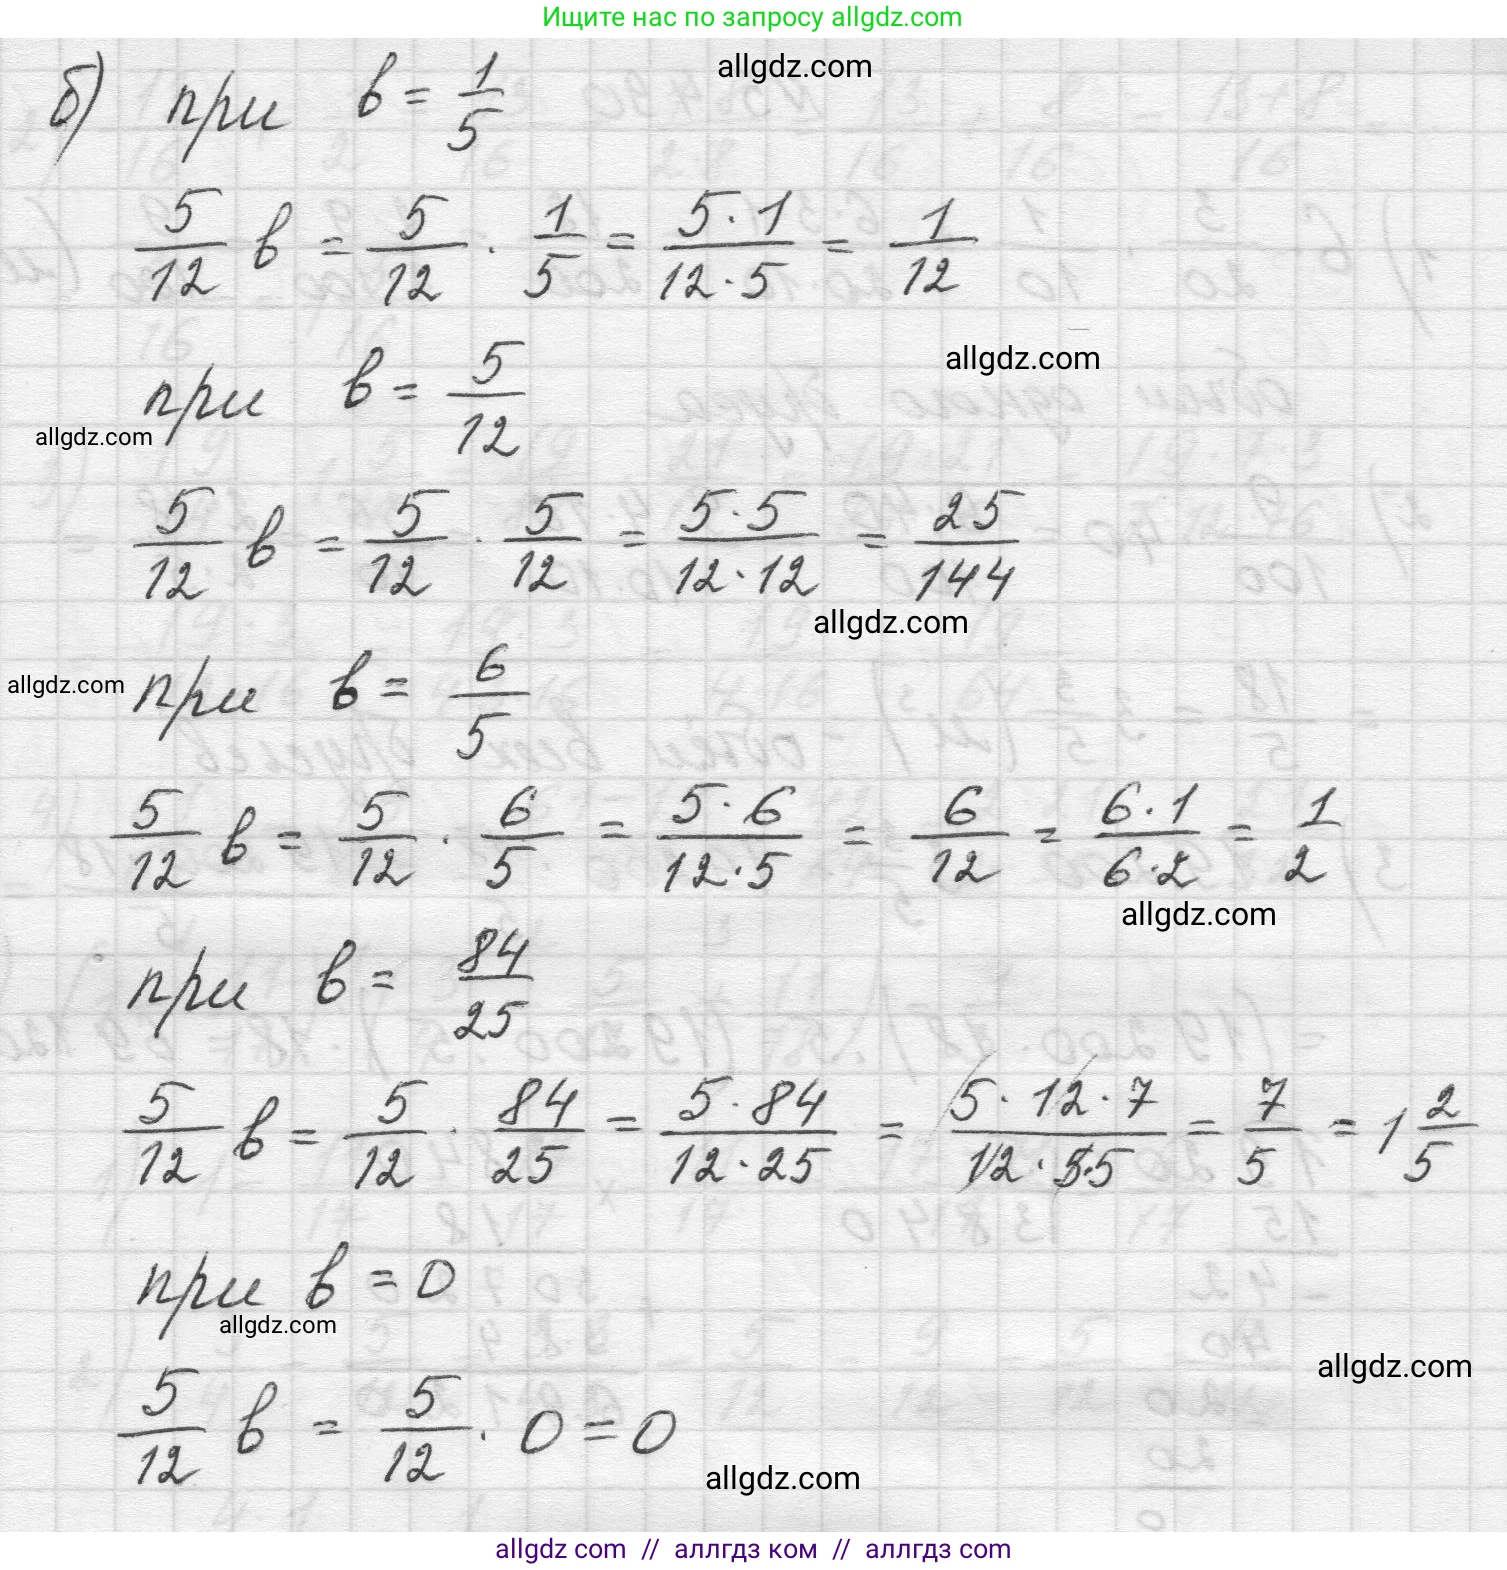 Ищите нас по запросу allgdz.com
allgdz.com
б) при в = 1/5
5/12 в = 5/12 · 1/5 = 5·1/12·5 = 1/12
allgdz.com
при в = 5/12
allgdz.com
5/12 в = 5/12 · 5/12 = 5·5/12·12 = 25/144
allgdz.com
allgdz.com
при в = 6/5
5/12 в = 5/12 · 6/5 = 5·6/12·5 = 6/12 = 6·1/6·2 = 1/2
allgdz.com
при в = 84/25
5/12 в = 5/12 · 84/25 = 5·84/12·25 = 5·12·7/12·5·5 = 7/5 = 1 2/5
при в = 0
allgdz.com
allgdz.com
5/12 в = 5/12 · 0 = 0
allgdz.com
allgdz com // аллгдз ком // аллгдз com